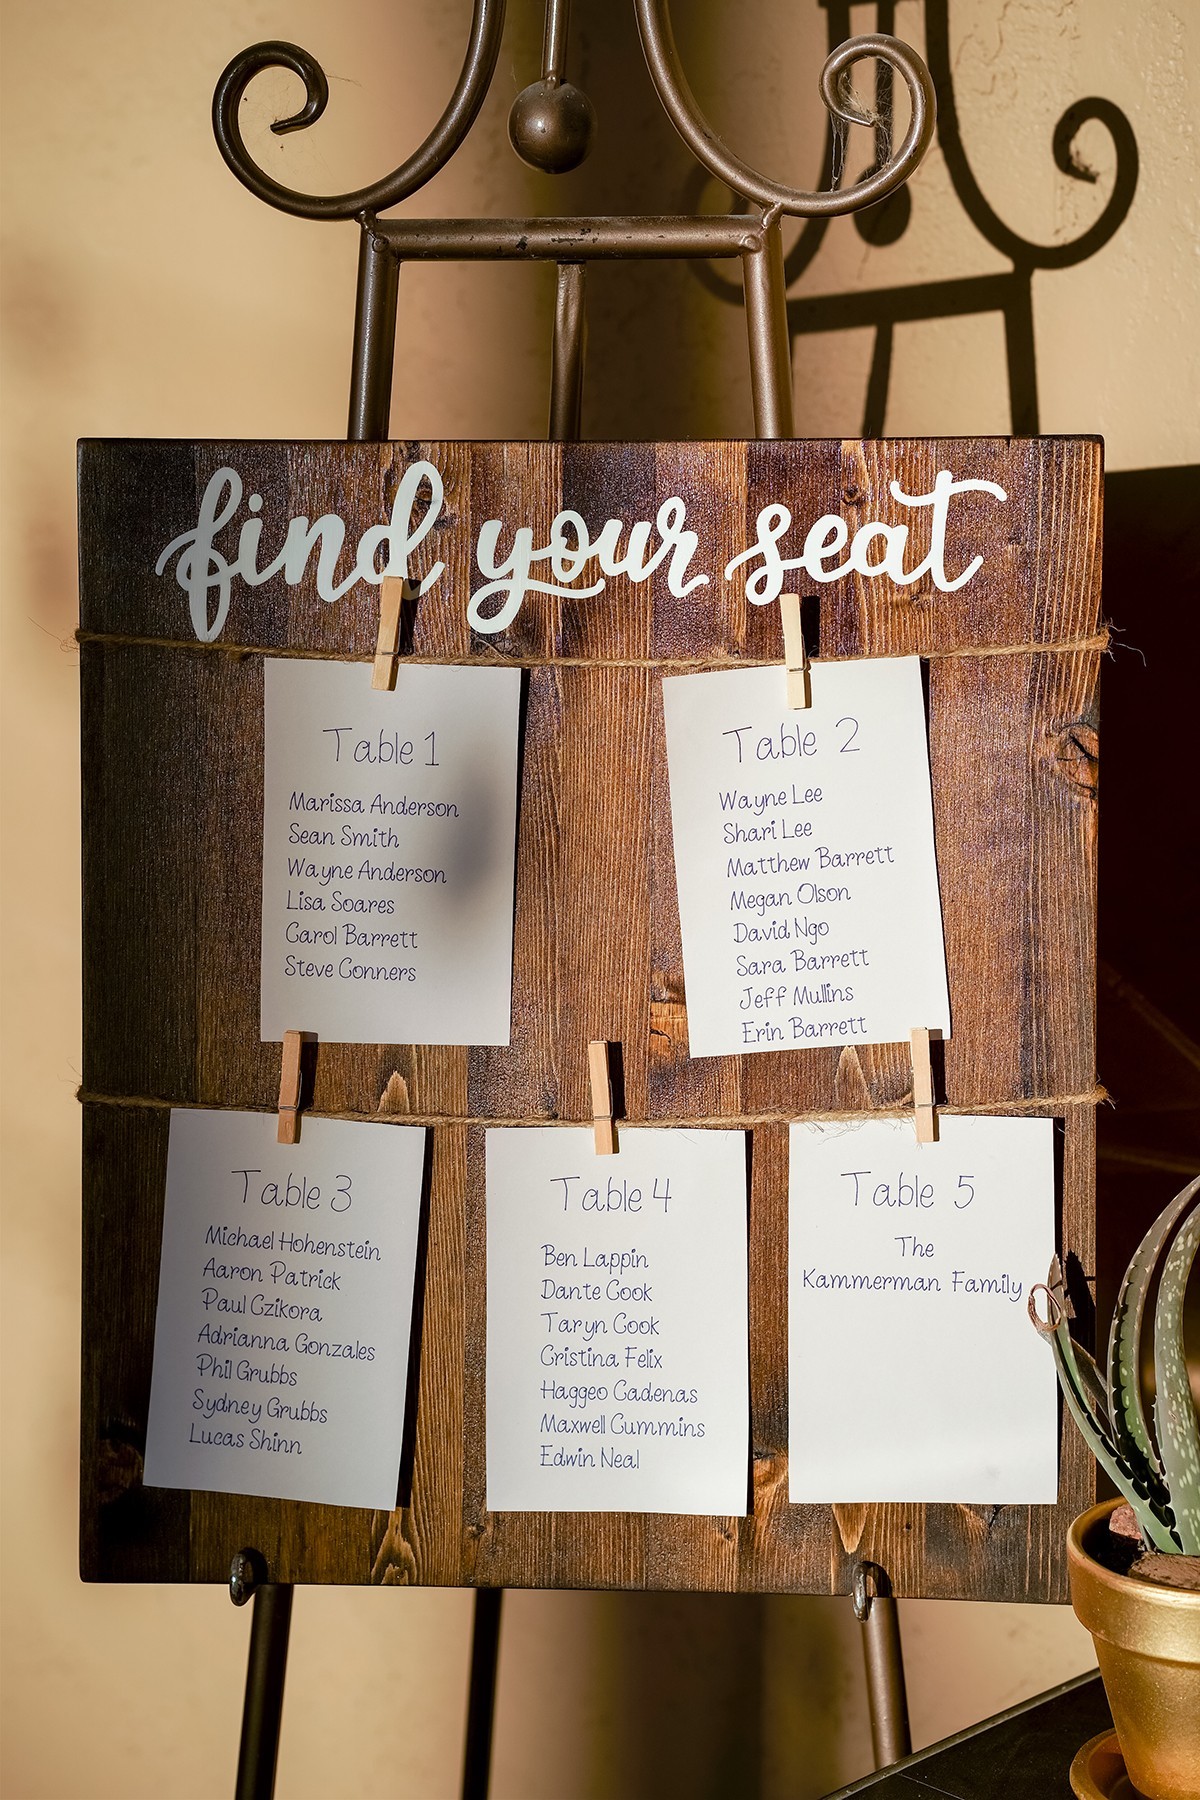 find your seat
Table 1
Marissa Anderson
Sean Smith
Wayne Anderson
Lisa Soares
Carol Barrett
Steve Conners
Table 2
Wayne Lee
Shari Lee
Matthew Barrett
Megan Olson
David Ngo
Sara Barrett
Jeff Mullins
Erin Barrett
Table 3
Michael Hohenstein
Aaron Patrick
Paul Czikora
Adrianna Gonzales
Phil Grubbs
Sydney Grubbs
Lucas Shinn
Table 4
Ben Lappin
Dante Cook
Taryn Cook
Cristina Felix
Haggeo Cadenas
Maxwell Cummins
Edwin Neal
Table 5
The
Kammerman Family